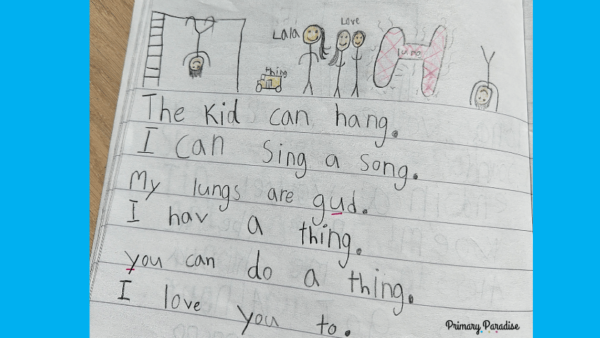 Lala
Love
thing
The kid can hang.
I can sing a song.
My lungs are gud.
I hav a thing.
you can do a thing.
I love you to.
Primary Paradise